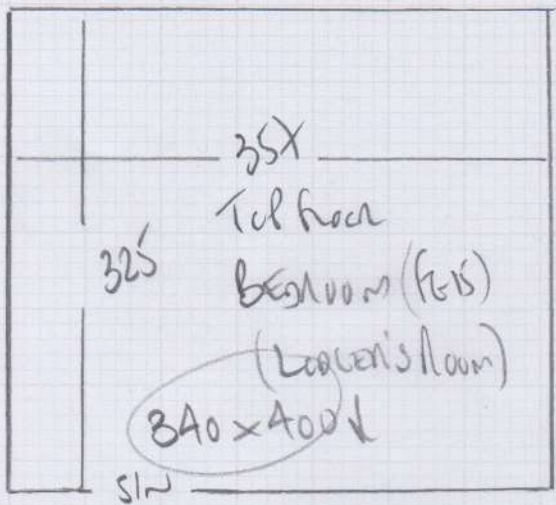 35X
Top Floor
325
BEDROOM (
(LODGER'S ROOM)
340 x 400